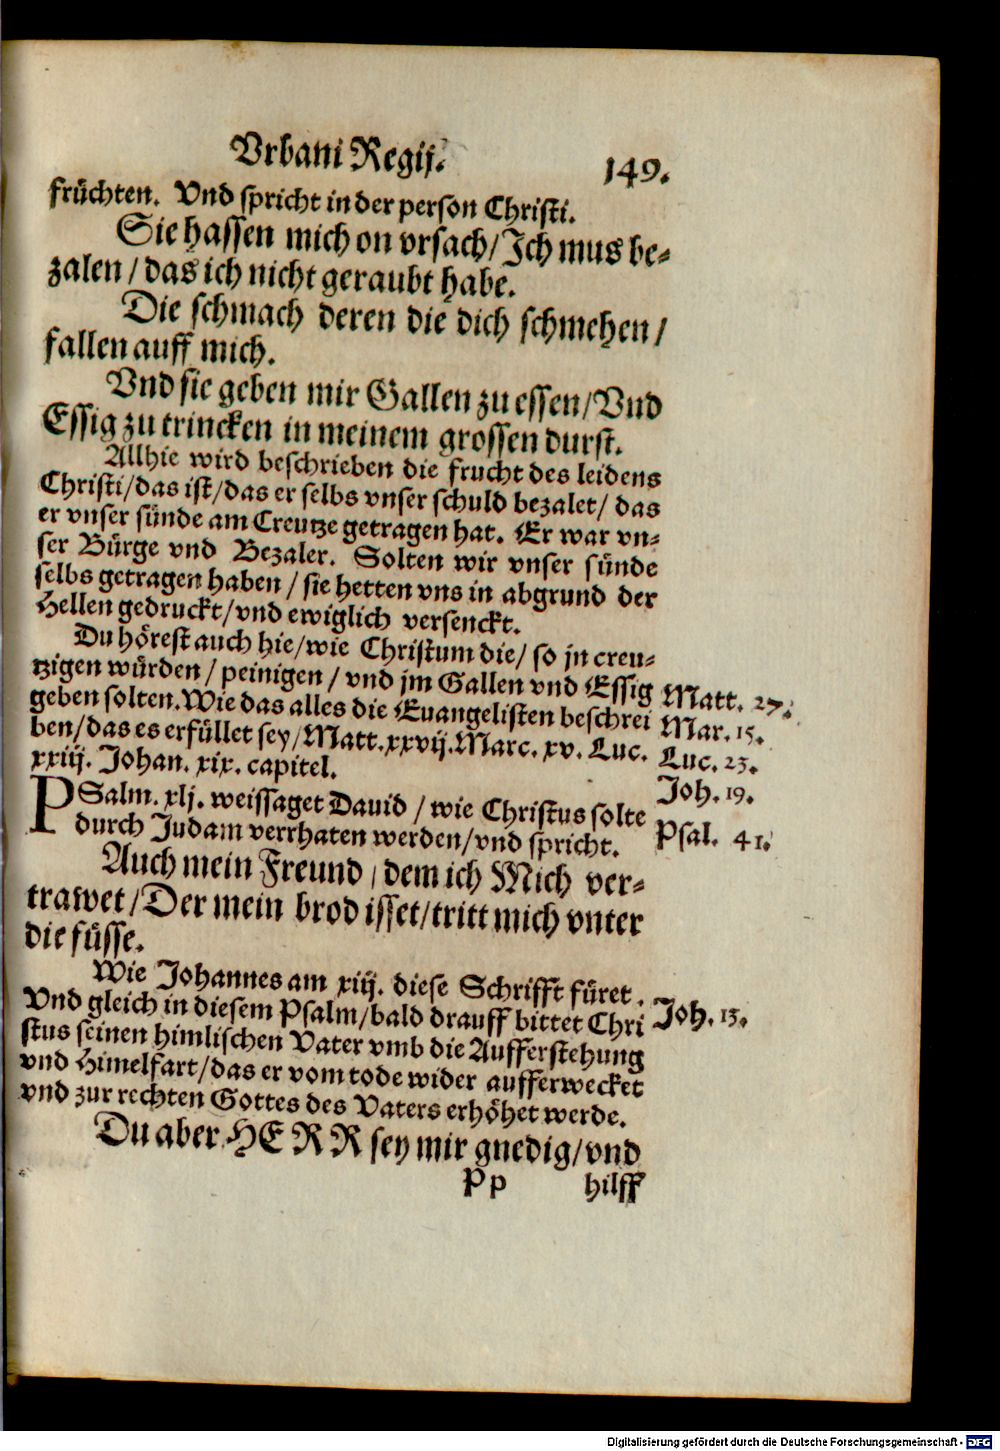 Vrbani Regij.
149.
früchten. Vnd spricht in der person Christi.
Sie hassen mich on vrsach/Ich mus be-
zalen/das ich nicht geraubt habe.
Die schmach deren die dich schmehen/
fallen auff mich.
Vnd sie geben mir Gallen zu essen/Vnd
Essig zu trincken in meinem grossen durst.
Allhie wird beschrieben die frucht des leidens
Christi/das ist/das er selbs vnser schuld bezalet/ das
er vnser sünde am Creutze getragen hat. Er war vn-
ser Bürge vnd Bezaler. Solten wir vnser sünde
selbs getragen haben/ sie hetten vns in abgrund der
Hellen gedruckt/vnd ewiglich versenckt.
Du hörest auch hie/wie Christum die/ so jn creu-
tzigen würden/ peinigen/ vnd jm Gallen vnd Essig
geben solten.Wie das alles die Euangelisten beschrei
ben/das es erfüllet sey/Matt.xxvij.Marc. xv. Luc.
xxiij. Johan. xix. capitel.
Matt. 27.
Mar. 15.
Luc. 23.
Joh. 19.
PSalm. xlj. weissaget Dauid/ wie Christus solte
durch Judam verrhaten werden/vnd spricht.
Psal. 41.
Auch mein Freund/ dem ich Mich ver-
trawet/Der mein brod isset/tritt mich vnter
die füsse.
Wie Johannes am xiij. diese Schrifft füret.
Vnd gleich in diesem Psalm/bald drauff bittet Chri
stus seinen himlischen Vater vmb die Aufferstehung
vnd Himelfart/das er vom tode wider aufferwecket
vnd zur rechten Gottes des Vaters erhöhet werde.
Joh. 13.
Du aber HERR sey mir gnedig/vnd
Pp
hilff
Digitalisierung gefördert durch die Deutsche Forschungsgemeinschaft - DFG